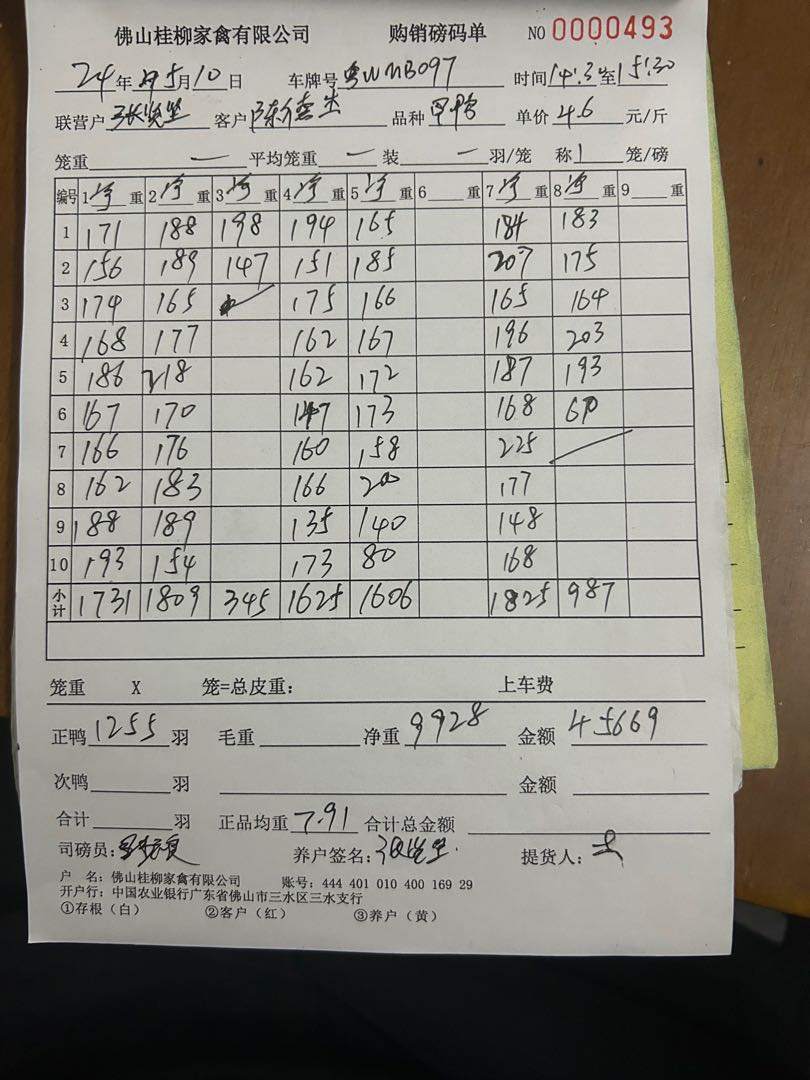 佛山桂柳家禽有限公司 购销磅码单 NO 0000493
24年5月10日 车牌号粤WMB097 时间14:3至15:30
联营户 客户 品种 单价4.6元/斤
笼重 — 平均笼重 — 装 — 羽/笼 称1笼/磅
编号 1净重 2净重 3净重 4净重 5净重 6重 7净重 8净重 9重
1 171 188 198 194 165 184 183
2 156 189 147 151 185 207 175
3 174 165 175 166 165 164
4 168 177 162 167 196 203
5 186 218 162 172 187 193
6 167 170 147 173 168 69
7 166 176 160 158 225
8 162 183 166 200 177
9 188 189 135 140 148
10 193 154 173 80 168
小计 1731 1809 345 1625 1606 1825 987
笼重 X 笼=总皮重： 上车费
正鸭1255羽 毛重 净重9928 金额45669
次鸭 羽 金额
合计 羽 正品均重7.91 合计总金额
司磅员： 养户签名： 提货人：
户 名：佛山桂柳家禽有限公司 账号：444 401 010 400 169 29
开户行：中国农业银行广东省佛山市三水区三水支行
①存根（白） ②客户（红） ③养户（黄）